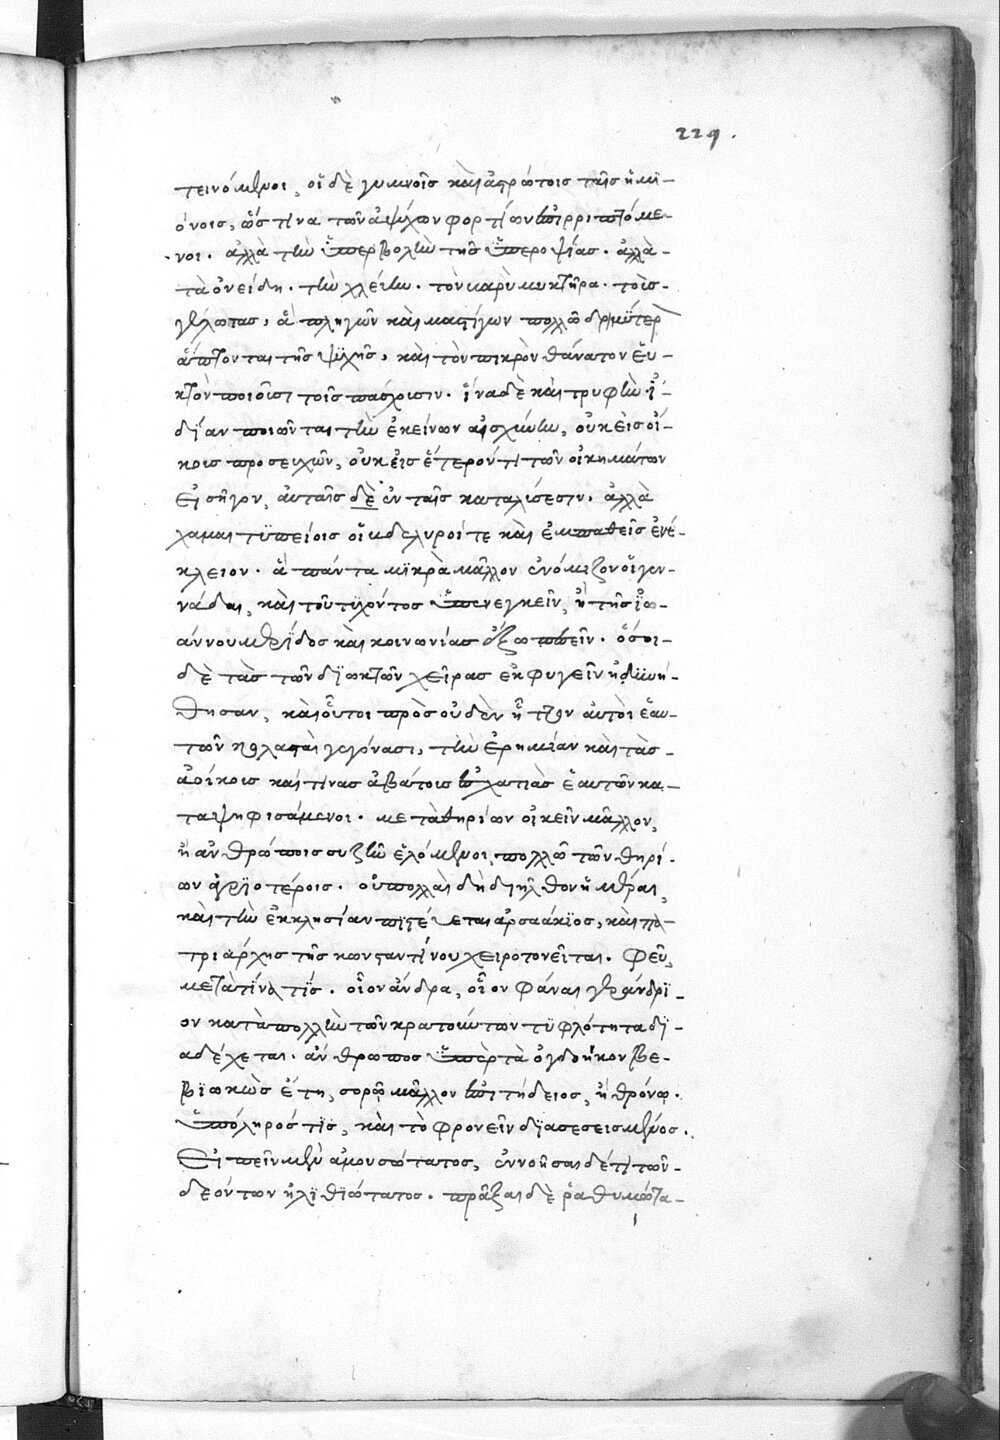 229.
τεινόμενοι, οἱ δὲ γυμνοῖς καὶ ἀστρώτοις ταῖς ἡμι-
όνοις, ὥς τινα τῶν ἀψύχων φορτίων ἐπιρριπτόμε-
νοι. ἀλλὰ τὴν ὑπερβολὴν τῆς ὑπεροψίας. ἀλλὰ
τὰ ὀνείδη. τὴν χλεύην. τὸν μυκτῆρα. τοὺς
γέλωτας, ἃ πληγῶν καὶ μαστίγων πολλῷ δριμύτερ
ἅπτονται τῆς ψυχῆς, καὶ τὸν πικρὸν θάνατον εὐ-
κτὸν ποιοῦσι τοῖς πάσχουσιν. ἵνα δὲ καὶ τρυφὴν ἰ-
δίαν ποιῶνται τὴν ἐκείνων αἰσχύνην, οὐκ εἰς οἴ-
κους προσειχῶν, οὐκ εἰς ἕτερόν τι τῶν οἰκημάτων
εἰσῆγον, αὐταῖς δὲ ἐν ταῖς καταλύσεσιν. ἀλλὰ
χαμαιτυπείοις οἱ βδελυροί τε καὶ ἐμπαθεῖς ἐνέ-
κλειον. ἃ πάντα μικρὰ μᾶλλον ἐνόμιζον οἱ γεν-
νάδαι, καὶ τοῦ τυχόντος ὑπενεγκεῖν, ἢ τῆς ἰω-
άννου μερίδος καὶ κοινωνίας ἔξω πεσεῖν. ὅσοι
δὲ τὰς τῶν διωκτῶν χεῖρας ἐκφυγεῖν ἠδυνή-
θησαν, καὶ οὗτοι πρὸς οὐδὲν ἧττον αὐτοὶ ἑαυ-
τῶν κολασταὶ γεγόνασι, τὴν ἐρημίαν καὶ τὰς
ἀοίκους καί τινας ἀβάτους ἐσχατιὰς ἑαυτῶν κα-
ταψηφισάμενοι. μετὰ θηρίων οἰκεῖν μᾶλλον,
ἢ ἀνθρώποις συζῆν ἑλόμενοι, πολλῷ τῶν θηρί-
ων ἀγριοτέροις. οὐ πολλαὶ δὴ διῆλθον ἡμέραι,
καὶ τὴν ἐκκλησίαν πιστεύεται ἀρσάκιος, καὶ πα-
τριάρχης τῆς κωνσταντίνου χειροτονεῖται. φεῦ,
μετὰ τίνα τίς. οἷον ἄνδρα, οἷον φάναι γερόντρι-
ον κατὰ πολλὴν τῶν κρατούντων τυφλότητα δι-
αδέχεται. ἄνθρωπος ὑπὲρ τὰ ὀγδοήκοντα βε-
βιωκὼς ἔτη, σορῷ μᾶλλον ἐπιτήδειος, ἢ θρόνῳ.
ὑπόληρός τις, καὶ τὸ φρονεῖν διασεσεισμένος.
εἰπεῖν μὲν ἀμουσότατος, ἐννοῆσαι δέ τι τῶν
δεόντων ἠλιθιώτατος. πρᾶξαι δὲ ῥᾳθυμότα-